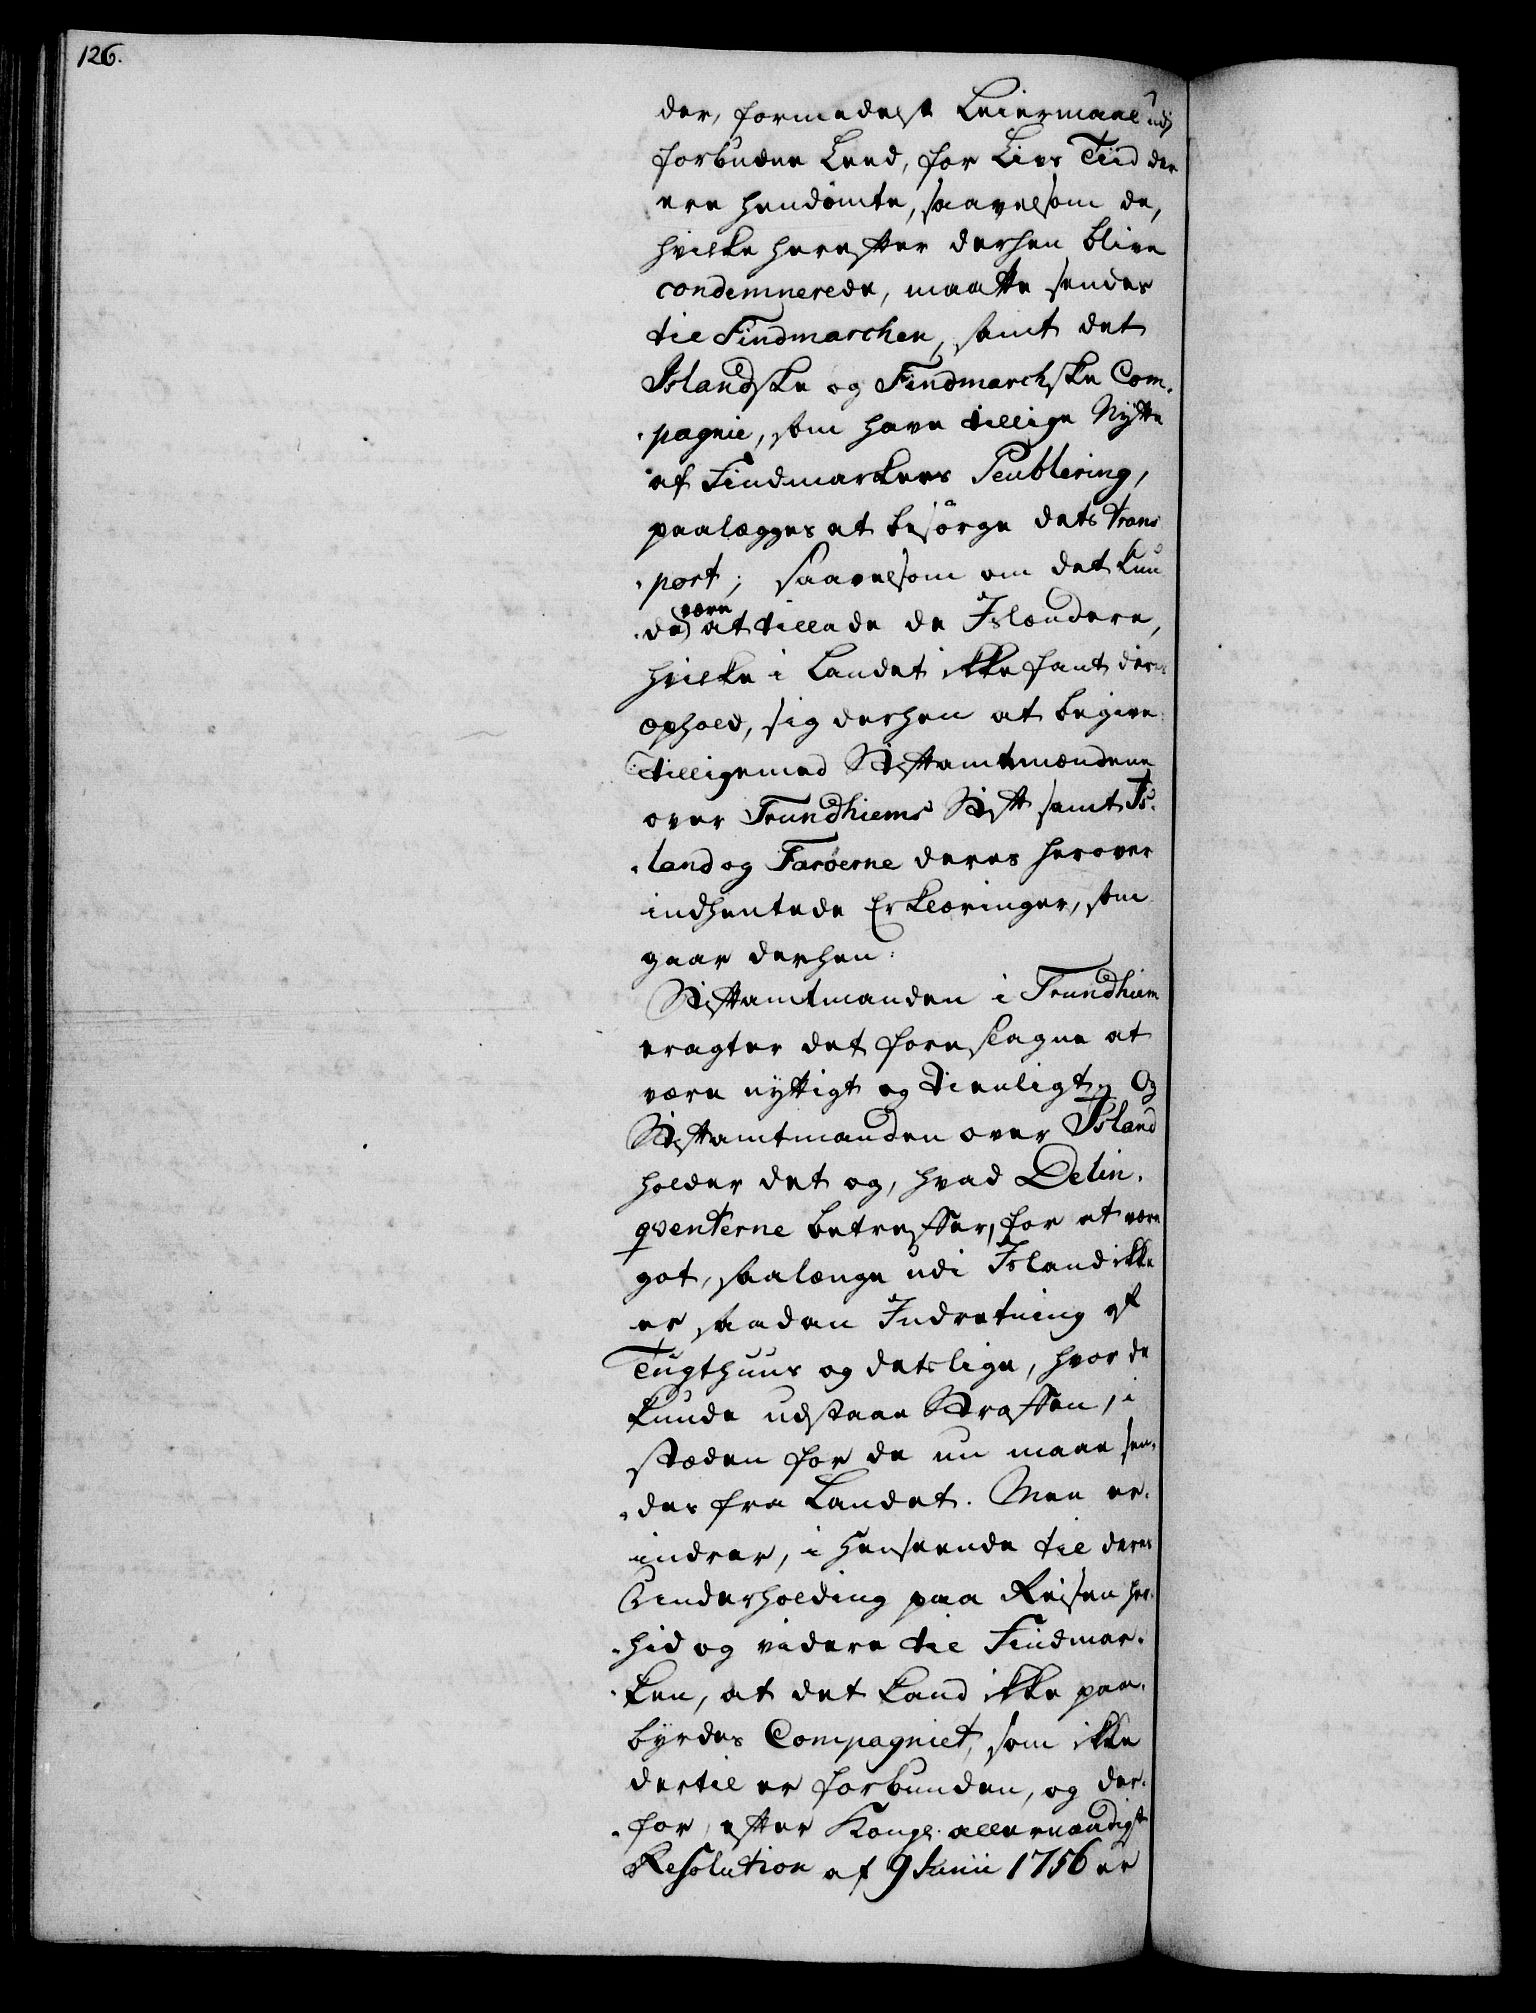 126.
der, formedelst Leiermaal udi
forbudne Leed, for Livs Tiid der
ere hendömte, saavelsom de,
hvilke herefter derhen blive
condemnerede, maatte sendes
til Findmarchen, samt det
Islandske og Findmarchske Com-
pagnie, som have tillige Nytte
af Findmarkens Peublering,
paalægges at besörge dets Trans
port; saavelsom om det kun
de være at tillade de Islændere,
hvilke i Landet ikke fant deres
ophold, sig derhen at begive:
Tilligemed Stiftamtmændene
over Trundhiems Stift samt Is-
land og Faröerne deres herover
indhentede Erklæringer, som
gaar derhen:
Stiftamtmanden i Trundhiem
eragter det foreslagne at
være nyttigt og tienligt, Og
Stiftamtmanden over Island
holder det og, hvad Delin-
qventerne betreffer, for at være
got, saalænge udi Island ikke
er saadan Indretning af
Tugthuus og detslige, hvor de
kunde udstaae Straffen, i
stæden for de nu maae sen-
des fra Landet. Men er-
indrer, i Henseende til deres
Underholding paa Reisen her-
hid og videre til Findmar-
ken, at det Land ikke paa-
byrdes Compagniet, som ikke
dertil er forbunden, og der-
for, efter Kongl. allernaadigst
Resolution af 9 Junii 1756 er